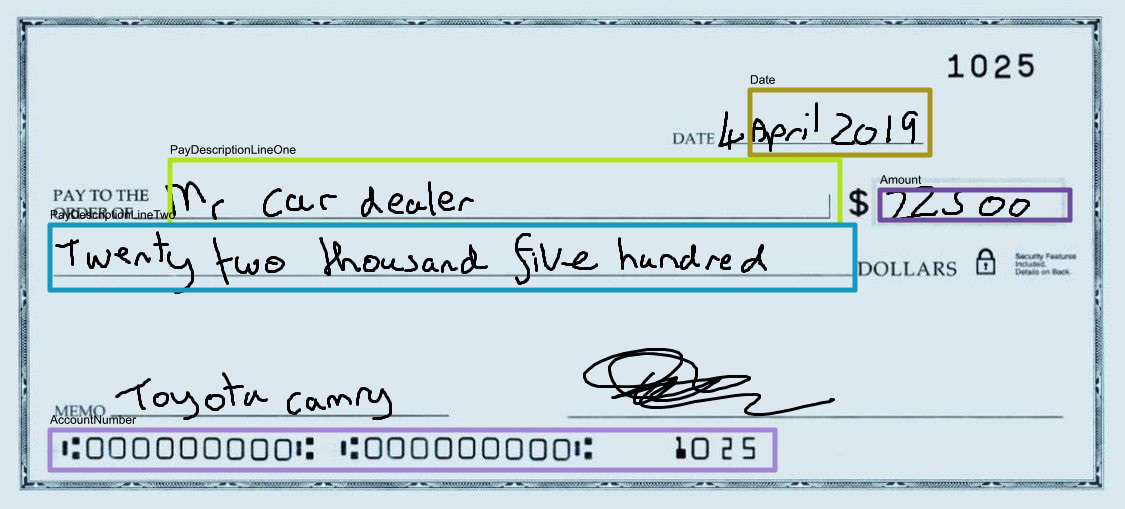 1025
Date
DATE 4 April 2019
PayDescriptionLineOne
Amount
PAY TO THE ORDER OF Mr car dealer $ 22500
PayDescriptionLineTwo
Twenty two thousand five hundred DOLLARS
Security Features
Included.
Details on Back.
MEMO Toyota camry
AccountNumber
⑆000000000⑆ ⑆000000000⑆ 1025